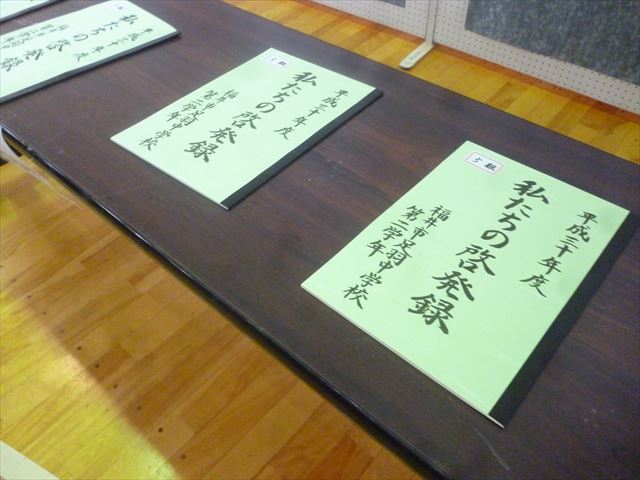 5組
平成三十年度
私たちの啓発録
福井市足羽中学校
第二学年
5組
平成三十年度
私たちの啓発録
福井市足羽中学校
第二学年
平成三十年度
私たちの啓発録
福井市足羽中学校
第二学年